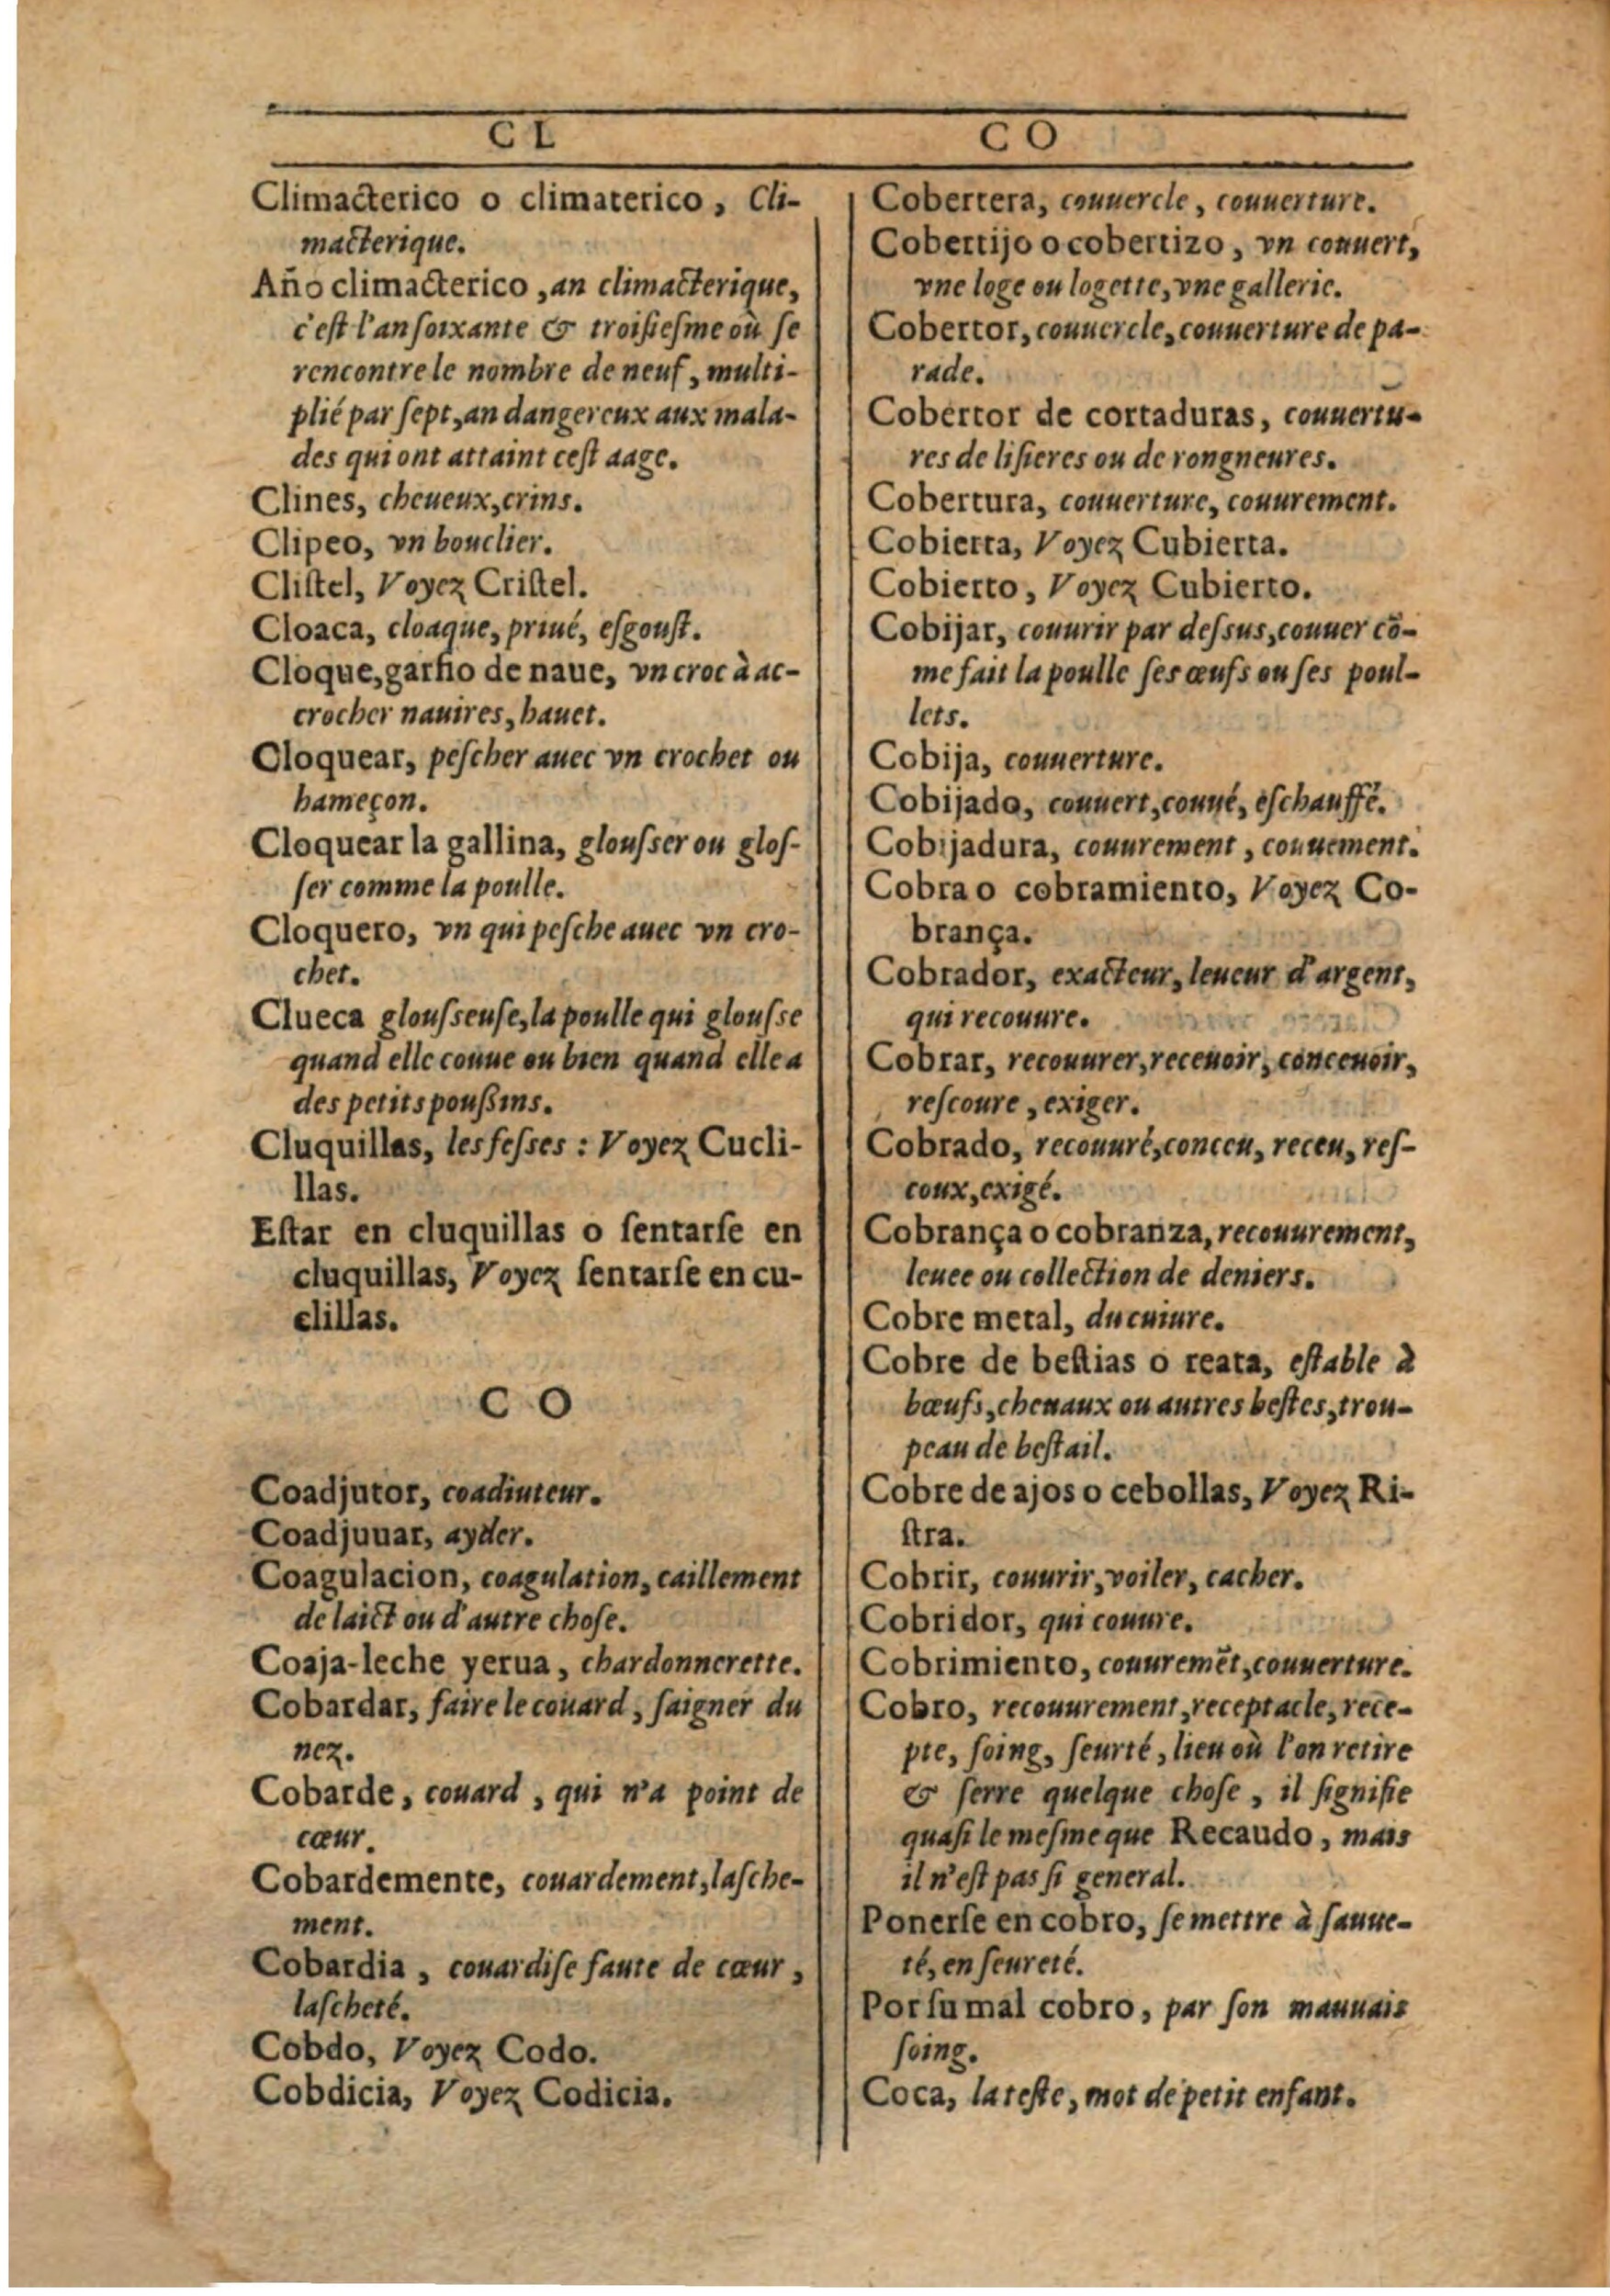 CL
Climacterico o climaterico, Cli-
macterique.
Año climacterico, an climacterique,
c'eſt l'an ſoixante & troiſieſme où ſe
rencontre le nombre de neuf, multi-
plié par ſept, an dangereux aux mala-
des qui ont attaint ceſt aage.
Clines, cheueux, crins.
Clipeo, vn bouclier.
Cliſtel, Voyez Criſtel.
Cloaca, cloaque, priué, eſgouſt.
Cloque, garfio de naue, vn croc à ac-
crocher nauires, hauet.
Cloquear, peſcher auec vn crochet ou
hameçon.
Cloquear la gallina, glouſser ou gloſ-
ſer comme la poulle.
Cloquero, vn qui peſche auec vn cro-
chet.
Clueca glouſseuſe, la poulle qui glouſse
quand elle couue ou bien quand elle a
des petits pouſsins.
Cluquillas, les feſses : Voyez Cucli-
llas.
Eſtar en cluquillas o ſentarſe en
cluquillas, Voyez ſentarſe en cu-
clillas.
CO
Coadjutor, coadiuteur.
Coadjuuar, ayder.
Coagulacion, coagulation, caillement
de laict ou d'autre choſe.
Coaja-leche yerua, chardonnerette.
Cobardar, faire le couard, ſaigner du
nez.
Cobarde, couard, qui n'a point de
cœur.
Cobardemente, couardement, laſche-
ment.
Cobardia, couardiſe faute de cœur,
laſcheté.
Cobdo, Voyez Codo.
Cobdicia, Voyez Codicia.
CO
Cobertera, couuercle, couuerture.
Cobertijo o cobertizo, vn couuert,
vne loge ou logette, vne gallerie.
Cobertor, couuercle, couuerture de pa-
rade.
Cobertor de cortaduras, couuertu-
res de liſieres ou de rongneures.
Cobertura, couuerture, couurement.
Cobierta, Voyez Cubierta.
Cobierto, Voyez Cubierto.
Cobijar, couurir par deſsus, couuer cõ-
me fait la poulle ſes œufs ou ſes poul-
lets.
Cobija, couuerture.
Cobijado, couuert, couué, eſchauffé.
Cobijadura, couurement, couuement.
Cobra o cobramiento, Voyez Co-
brança.
Cobrador, exacteur, leueur d'argent,
qui recouure.
Cobrar, recouurer, receuoir, conceuoir,
reſcoure, exiger.
Cobrado, recouuré, conceu, receu, reſ-
coux, exigé.
Cobrança o cobranza, recouurement,
leuee ou collection de deniers.
Cobre metal, du cuiure.
Cobre de beſtias o reata, eſtable à
bœufs, cheuaux ou autres beſtes, trou-
peau de beſtail.
Cobre de ajos o cebollas, Voyez Ri-
ſtra.
Cobrir, couurir, voiler, cacher.
Cobridor, qui couure.
Cobrimiento, couuremẽt, couuerture.
Cobro, recouurement, receptacle, rece-
pte, ſoing, ſeurté, lieu où l'on retire
& ſerre quelque choſe, il ſignifie
quaſi le meſme que Recaudo, mais
il n'eſt pas ſi general.
Ponerſe en cobro, ſe mettre à ſauue-
té, en ſeureté.
Por ſu mal cobro, par ſon mauuais
ſoing.
Coca, la teſte, mot de petit enfant.